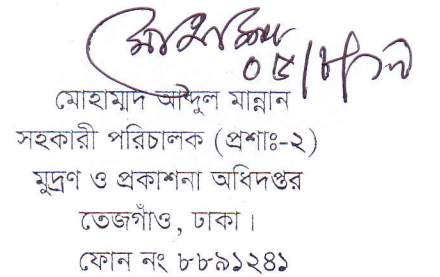 মোহাম্মদ আব্দুল মান্নান
সহকারী পরিচালক (প্রশাঃ-২)
মুদ্রণ ও প্রকাশনা অধিদপ্তর
তেজগাঁও, ঢাকা।
ফোন নং ৮৮৯১২৪১